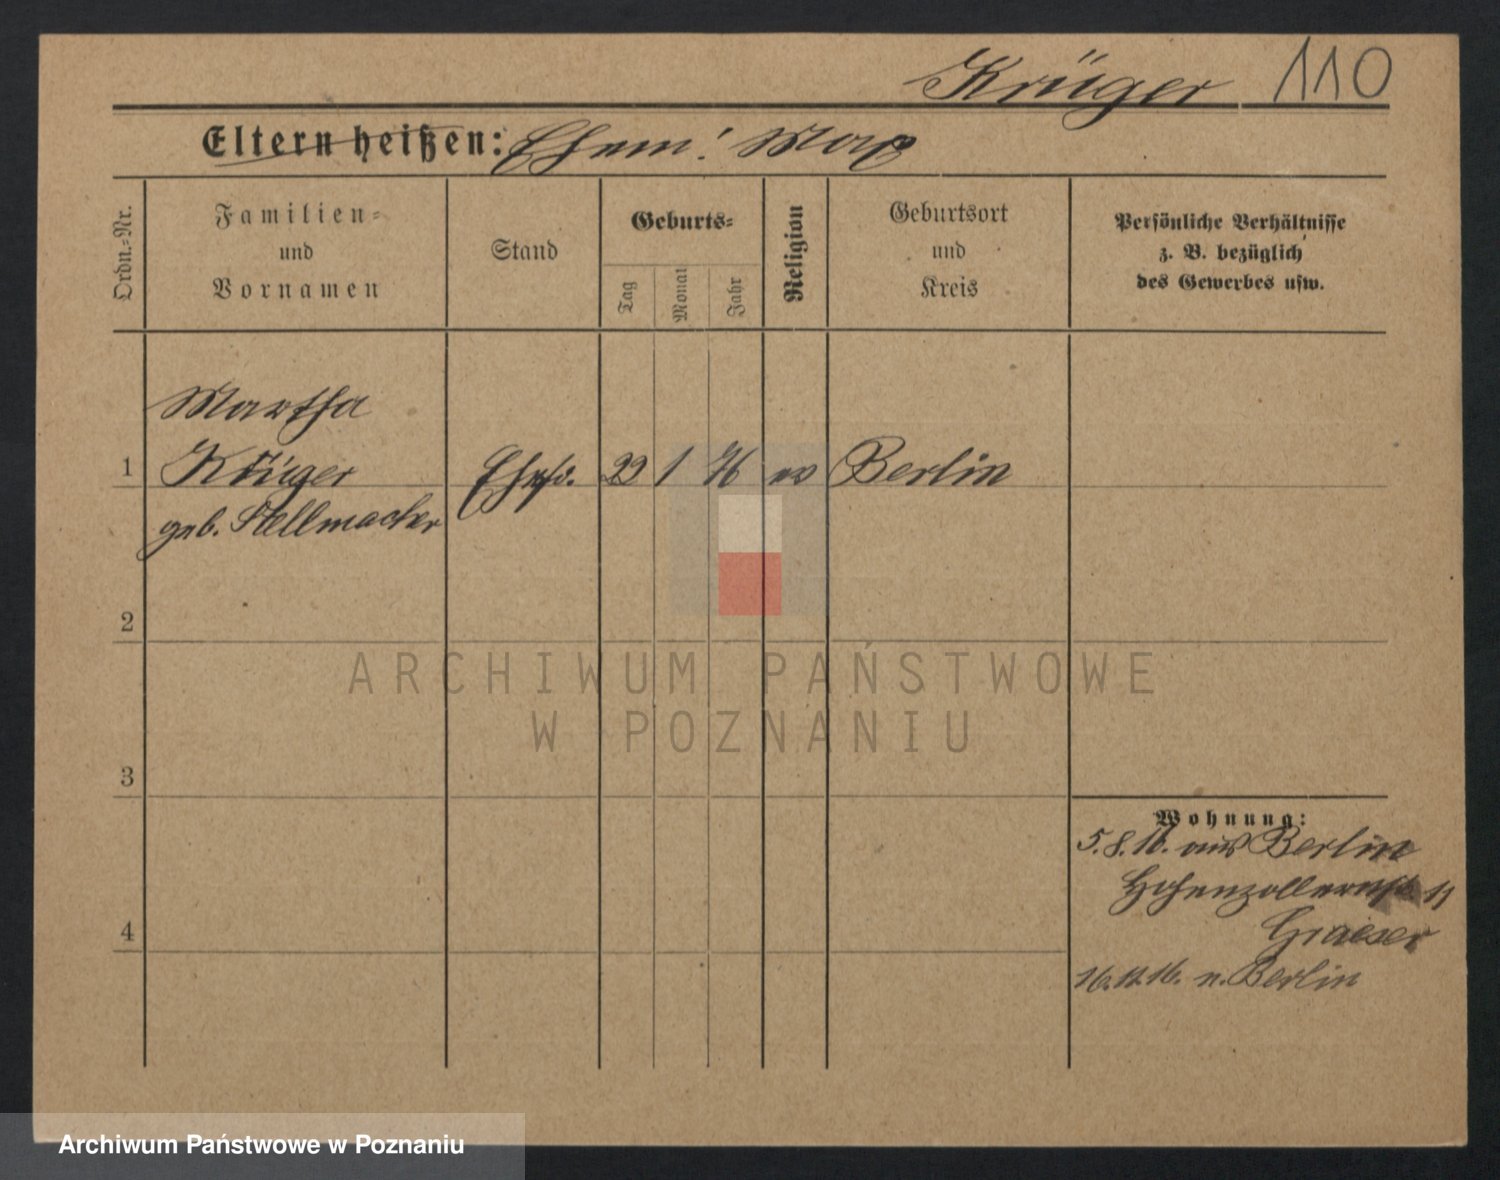 Krüger 110
Eltern heißen: Ehem: Max
Ordn.-Nr.
Familien-
und
Vornamen
Stand
Geburts-
Tag
Monat
Jahr
Religion
Geburtsort
und
Kreis
Persönliche Verhältnisse
z. B. bezüglich
des Gewerbes usw.
Martha
1 Krüger Ehefr. 29 1 76 ev Berlin
geb. Stellmacher
2
3
4
Wohnung:
5.8.16. aus Berlin
Hohenzollernst. 11
Graeser
16.11.16. n. Berlin
ARCHIWUM PAŃSTWOWE
W POZNANIU
Archiwum Państwowe w Poznaniu